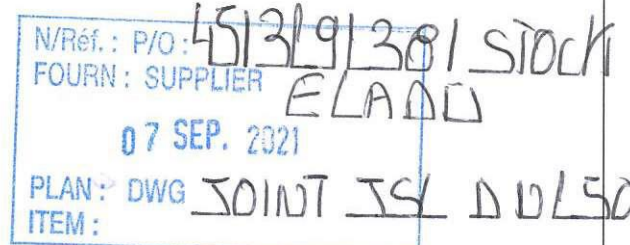 N/Réf.: P/O: 4513191381 STOCK
FOURN: SUPPLIER
ELADO
07 SEP. 2021
PLAN: DWG JOINT JSL D
ITEM: